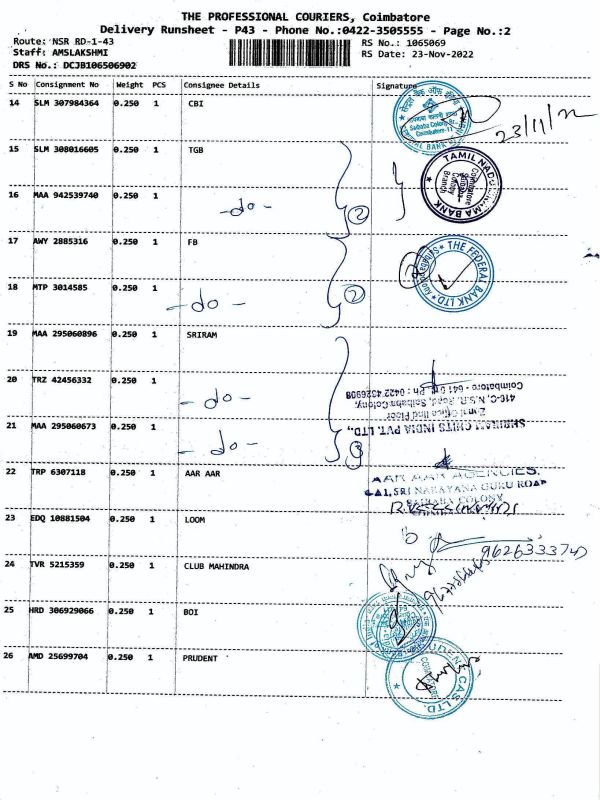 THE PROFESSIONAL COURIERS, Coimbatore
Delivery Runsheet - P43 - Phone No.:0422-3505555 - Page No.:2
Route: NSR RD-1-43
RS No.: 1065069
Staff: AMSLAKSHMI
RS Date: 23-Nov-2022
DRS No.: DCJB106506902
S No Consignment No Weight PCS Consignee Details Signature
14 SLM 307984364 0.250 1 CBI
23/11/22
15 SLM 308016605 0.250 1 TGB
16 MAA 942539740 0.250 1 -do- 2
17 AWY 2885316 0.250 1 FB
THE FEDERAL BANK LTD
18 MTP 3014585 0.250 1 -do- 2
19 MAA 295060896 0.250 1 SRIRAM
20 TRZ 42456332 0.250 1 -do-
21 MAA 295060673 0.250 1 -do- 3
SHRIRAM CHITS INDIA PVT. LTD.,
Zonal Office IInd Floor
416-C, N.S.R. Road, Saibaba Colony,
22 TRP 6307118 0.250 1 AAR AAR
AAR AAR AGENCIES.
SRI NARAYANA GURU ROAD
SAIBABA COLONY
23 EDQ 10881504 0.250 1 LOOM
24 TVR 5215359 0.250 1 CLUB MAHINDRA
25 HRD 306929066 0.250 1 BOI
26 AMD 25699704 0.250 1 PRUDENT